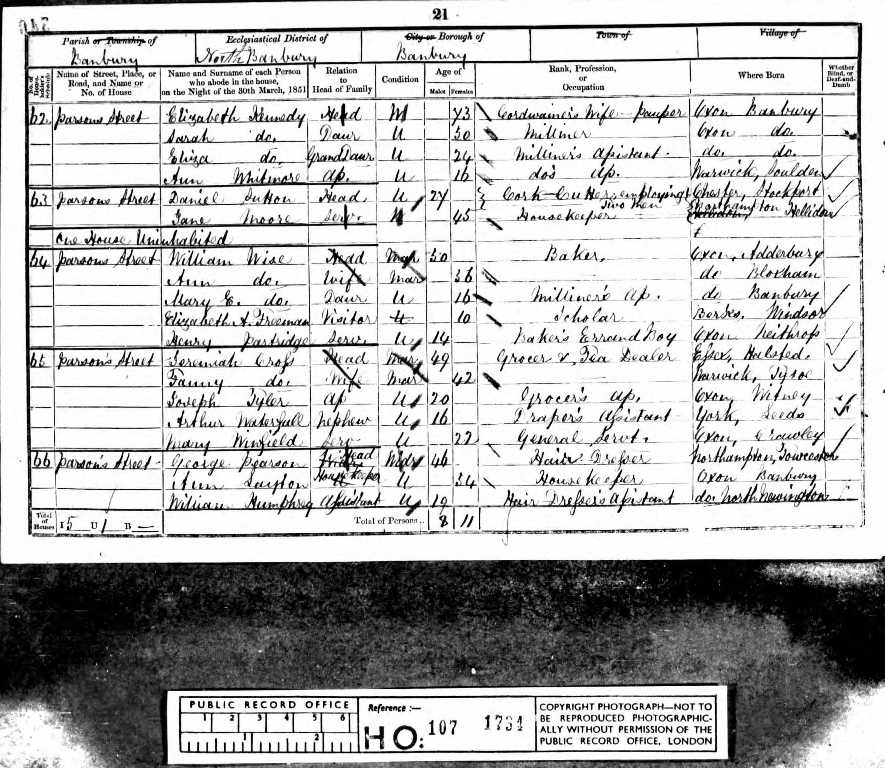 21
Parish or Township of Ecclesiastical District of City or Borough of Town of Village of
Banbury North Banbury Banbury
No. of Householder's Schedule Name of Street, Place, or Road, and Name or No. of House Name and Surname of each Person who abode in the house, on the Night of the 30th March, 1851 Relation to Head of Family Condition Age of Males Females Rank, Profession, or Occupation Where Born Whether Blind, or Deaf-and-Dumb
62 Parsons Street Elizabeth Kennedy Head 73 Cordwainer's Wife - Pauper Oxon Banbury
Sarah do. Daur U 30 Milliner Oxon do.
Eliza do. GrandDaur U 24 Milliner's Assistant. do. do.
Ann Whitmore Ap. U 16 do's Ap. Warwick, Souldern
63 Parsons Street Daniel Sutton Head U 27 Cork Cutter employing two men Chester, Stockport
Jane Moore Serv. 45 Housekeeper Northampton Hellidon
One House Uninhabited
64 Parsons Street William Wise Head Mar 30 Baker. Oxon, Adderbury
Ann do. Wife Mar 36 do Bloxham
Mary E. do. Daur U 16 Milliner's Ap. do Banbury
Elizabeth A. Freeman Visitor U 10 Scholar Berks. Windsor
Henry Partridge Serv. U 14 Baker's Errand Boy Oxon Neithrop
65 Parson's Street Jeremiah Cross Head Mar 49 Grocer & Tea Dealer Essex, Halsted.
Fanny do. Wife Mar 42 Warwick, Tysoe
Joseph Tyler Ap U 20 Grocer's Ap. Oxon, Witney
Arthur Waterfall Nephew U 16 Draper's Assistant York, Leeds
Mary Winfield Serv U 22 General Servt. Oxon, Crawley
66 Parson's Street George Pearson Head Widr 46 Hair Dresser Northampton, Towcester
Ann Layton House Keeper U 34 Housekeeper Oxon Banbury
William Humphrey Assistant U 19 Hair Dresser's Assistant do. North Newington
Total of Houses 15 U 1 B — Total of Persons.. 8 11
PUBLIC RECORD OFFICE
1 2 3 4 5 6
1 2
Reference :—
HO: 107 1734
COPYRIGHT PHOTOGRAPH—NOT TO
BE REPRODUCED PHOTOGRAPHIC-
ALLY WITHOUT PERMISSION OF THE
PUBLIC RECORD OFFICE, LONDON